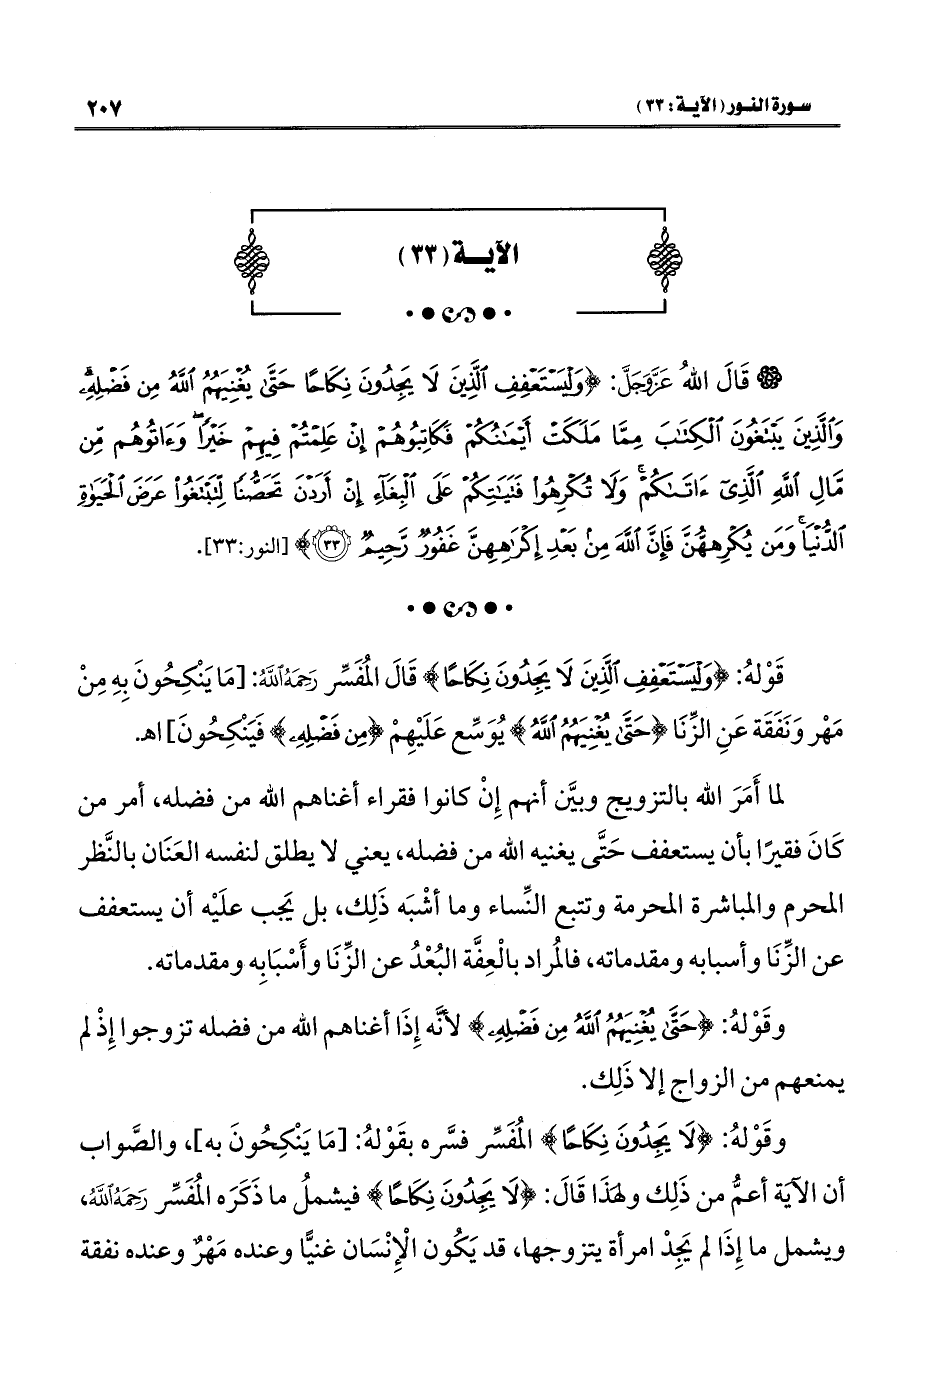 سورة النور (الآية: ٣٣)
٢٠٧
الآية (٣٣)
قَالَ اللهُ عَزَّوَجَلَّ: ﴿وَلْيَسْتَعْفِفِ ٱلَّذِينَ لَا يَجِدُونَ نِكَاحًا حَتَّىٰ يُغْنِيَهُمُ ٱللَّهُ مِن فَضْلِهِۦۗ
وَٱلَّذِينَ يَبْتَغُونَ ٱلْكِتَٰبَ مِمَّا مَلَكَتْ أَيْمَٰنُكُمْ فَكَاتِبُوهُمْ إِنْ عَلِمْتُمْ فِيهِمْ خَيْرًاۖ وَءَاتُوهُم مِّن
مَّالِ ٱللَّهِ ٱلَّذِىٓ ءَاتَىٰكُمْۚ وَلَا تُكْرِهُوا۟ فَتَيَٰتِكُمْ عَلَى ٱلْبِغَآءِ إِنْ أَرَدْنَ تَحَصُّنًا لِّتَبْتَغُوا۟ عَرَضَ ٱلْحَيَوٰةِ
ٱلدُّنْيَاۚ وَمَن يُكْرِههُّنَّ فَإِنَّ ٱللَّهَ مِنۢ بَعْدِ إِكْرَٰهِهِنَّ غَفُورٌ رَّحِيمٌ ٣٣﴾ [النور:٣٣].
قَوْلهُ: ﴿وَلْيَسْتَعْفِفِ ٱلَّذِينَ لَا يَجِدُونَ نِكَاحًا﴾ قَالَ المُفَسِّر رَحِمَهُ ٱللَّهُ: [مَا يَنْكِحُونَ بِهِ مِنْ
مَهْر وَنَفَقَة عَنِ الزِّنَا ﴿حَتَّىٰ يُغْنِيَهُمُ ٱللَّهُ﴾ يُوَسِّع عَلَيْهِمْ ﴿مِن فَضْلِهِۦ﴾ فَيَنْكِحُونَ] اهـ.
لما أَمَرَ الله بالتزويج وبيَّن أنهم إِنْ كانوا فقراء أغناهم الله من فضله، أمر من
كَانَ فقيرًا بأن يستعفف حَتَّى يغنيه الله من فضله، يعني لا يطلق لنفسه العَنَان بالنَّظر
المحرم والمباشرة المحرمة وتتبع النِّساء وما أشْبَه ذَلِك، بل يجب عليْه أن يستعفف
عن الزِّنَا وأسبابه ومقدماته، فالمُراد بالْعِفَّة البُعْدُ عن الزِّنَا وأَسْبَابِه ومقدماته.
وقَوْلهُ: ﴿حَتَّىٰ يُغْنِيَهُمُ ٱللَّهُ مِن فَضْلِهِۦ﴾ لأنَّه إِذَا أغناهم الله من فضله تزوجوا إِذْ لم
يمنعهم من الزواج إلا ذَلِك.
وقَوْلهُ: ﴿لَا يَجِدُونَ نِكَاحًا﴾ المُفَسِّر فسَّره بقَوْلهُ: [مَا يَنْكِحُونَ به]، والصَّواب
أن الآيَة أعمُّ من ذَلِك ولهذَا قَالَ: ﴿لَا يَجِدُونَ نِكَاحًا﴾ فيشملُ ما ذَكَرَه المُفَسِّر رَحِمَهُ ٱللَّهُ،
ويشمل ما إِذَا لم يَجِدْ امرأة يتزوجها، قد يَكُون الْإِنْسَان غنيًّا وعنده مَهْرٌ وعنده نفقة